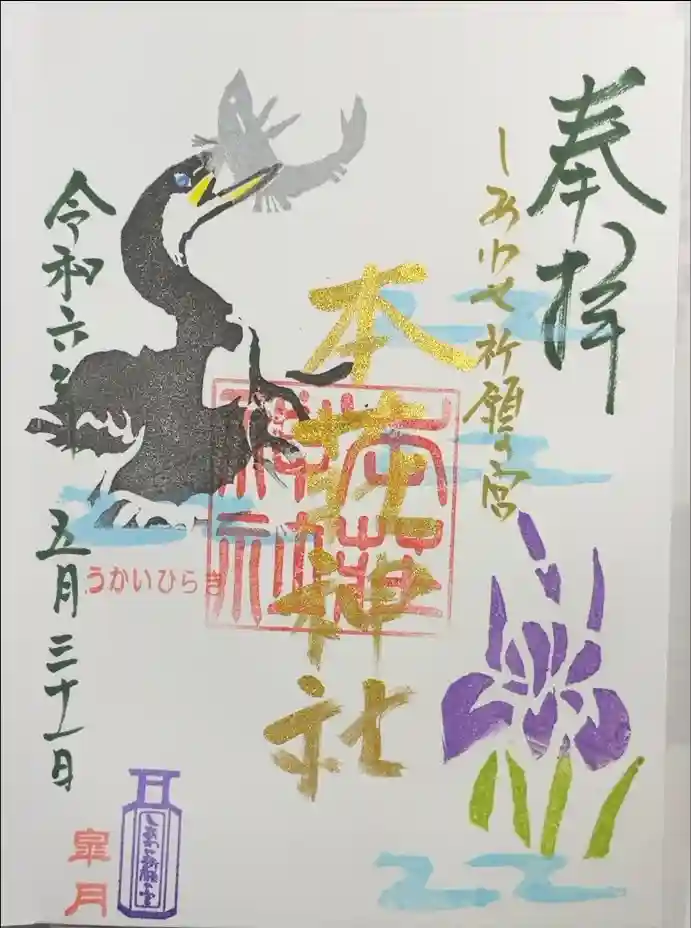 奉拝
しあわせ祈願の宮
本荘神社
本荘神社
令和六年
五月三十一日
うかいひらき
皐月
しあわせ祈願の宮